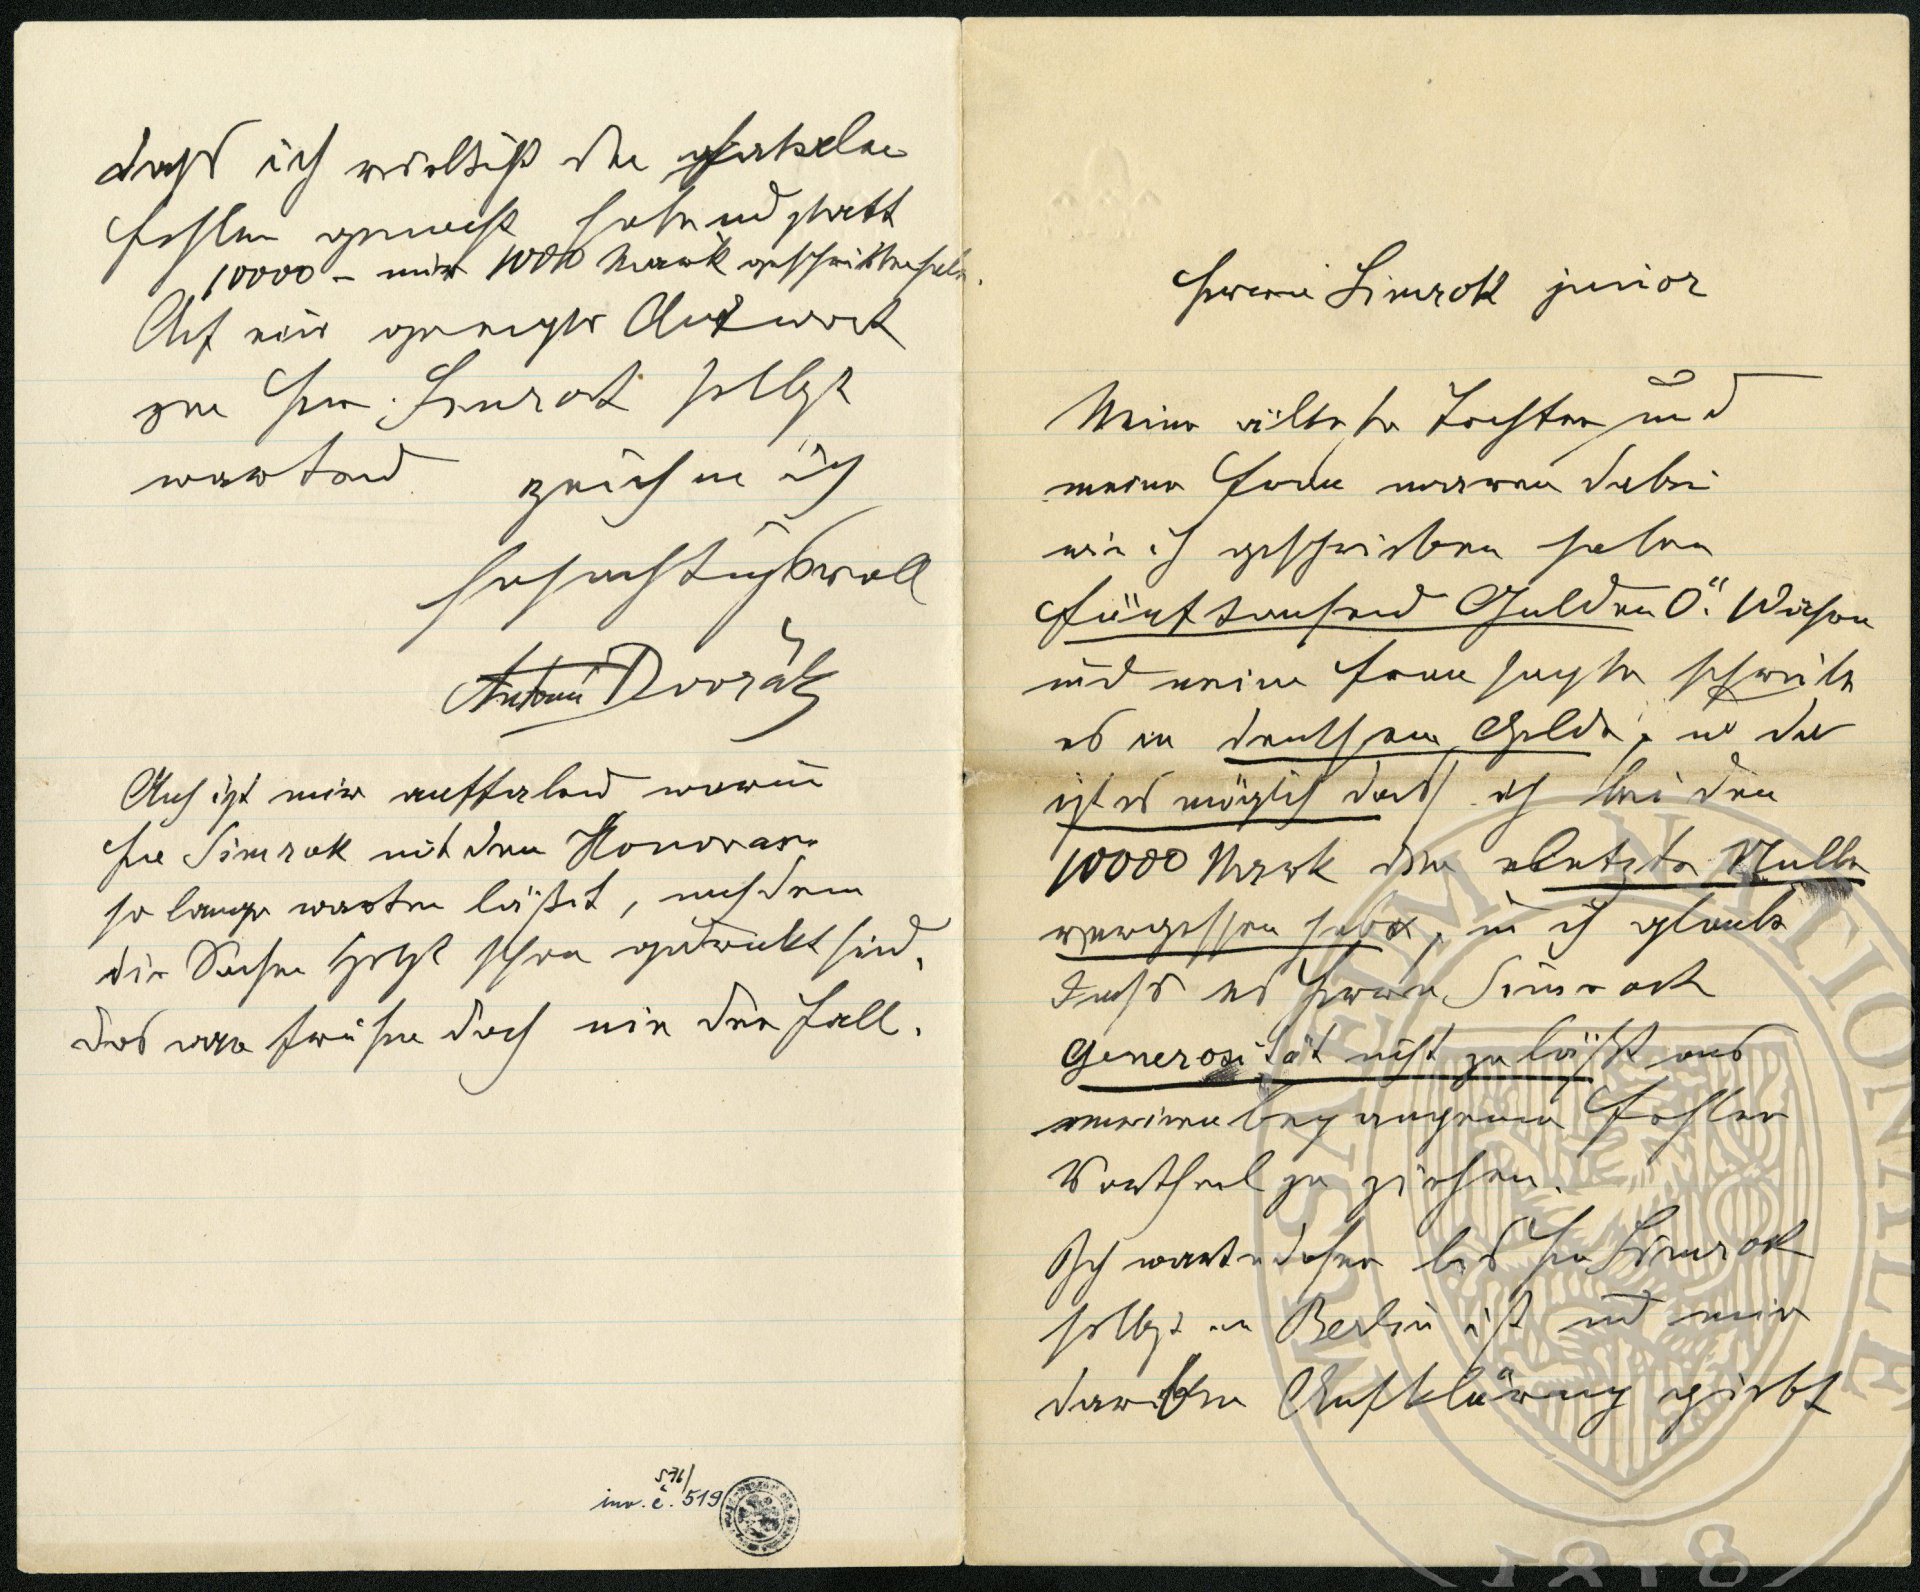 Herrn Simrock junior
Meine älteste Tochter und
meine Frau waren dabei
wie ich geschrieben habe
fünftausend Gulden Ö. Währ
und meine Frau sagte schreibe
es in deutschem Gelde, u da
ist es möglich dass ich bei den
10000 Mark die letzte Nulle
vergessen habe, u ich glaube
dass es Herrn Simrock
Generosität nicht zuläßt aus
meinem begangenen Fehler
Vortheil zu ziehen.
Ich warte daher bis Hr Simrok
selbst in Berlin ist und mir
darüber Aufklärung giebt
dass ich wirklich den
Fehler gemacht habe und statt
10000 – nur 1000 Mark geschrieben habe.
Auf eine geneigte Antwort
von Hrn. Simrok selbst
wartend zeichne ich
hochachtungsvoll
Antonín Dvořák
Auch ist mir auffalend warum
Hr Simrok mit dem Honorar
so lange warten läßt, nachdem
die Sachen jetzt schon gedruckt sind.
Das war früher doch nie der Fall.
S 76/
inv. č. 519
MUSAEUM NATIONALE
1818